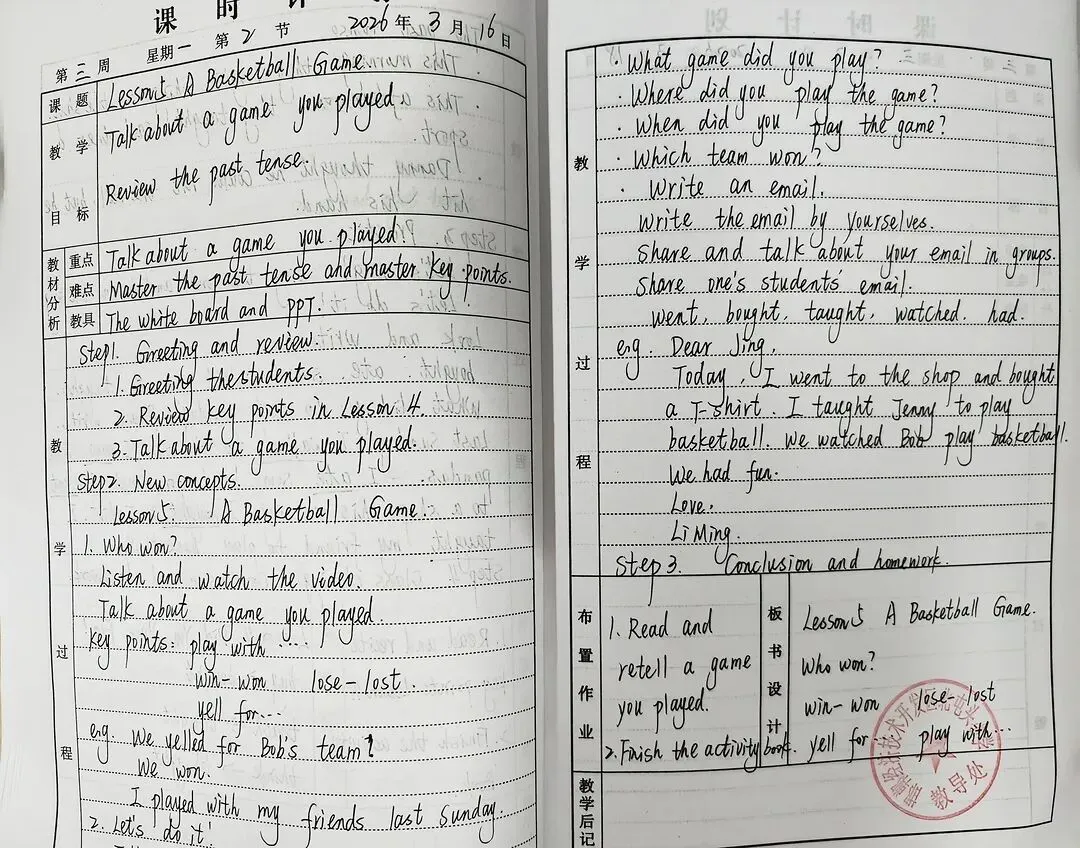 课 时 计
2026年 3月 16日
第三周 星期一 第2节
课题 Lesson5 A Basketball Game
教学目标 Talk about a game you played
Review the past tense.
教材分析
重点 Talk about a game you played?
难点 Master the past tense and master key points.
教具 The white board and PPT.
教学过程
Step1. Greeting and review.
1. Greeting thestudents.
2. Review key points in Lesson 4.
3. Talk about a game you played.
Step2. New concepts.
Lesson5. A Basketball Game.
1. Who won?
Listen and watch the video.
Talk about a game you played.
key points: play with ...
win-won lose-lost.
yell for...
e.g. We yelled for Bob's team!
We won.
I played with my friends last Sunday.
2. Let's do it!
教学过程
· What game did you play?
· Where did you play the game?
· When did you play the game?
· Which team won?
· Write an email.
Write the email by yourselves.
Share and talk about your email in groups.
Share one's students' email.
went, bought, taught, watched. had.
e.g. Dear Jing,
Today, I went to the shop and bought
a T-shirt. I taught Jenny to play
basketball. We watched Bob play basketball.
We had fun.
Love,
Li Ming.
Step 3. Conclusion and homework.
布置作业
1. Read and
retell a game
you played.
2. Finish the activity book.
板书设计
Lesson5 A Basketball Game.
Who won?
win-won lose-lost
yell for... play with...
教导处
教学后记